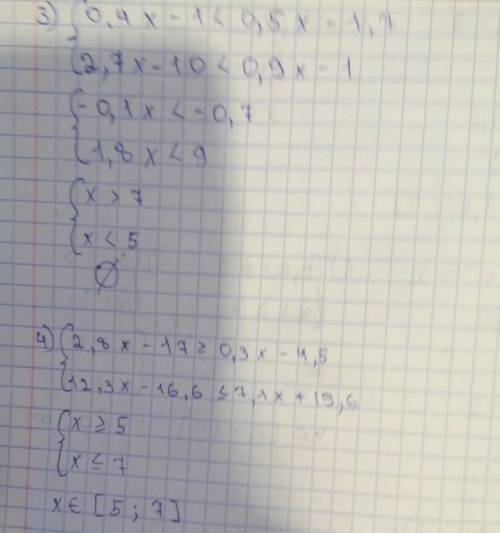 3) { 0,4x - 1 < 0,5x - 1,7
2,7x - 10 < 0,9x - 1
{ -0,1x < -0,7
1,8x < 9
{ x > 7
x < 5
∅
4) { 2,8x - 17 ≥ 0,3x - 4,5
12,3x - 16,6 ≤ 7,1x + 19,6
{ x ≥ 5
x ≤ 7
x ∈ [5; 7]